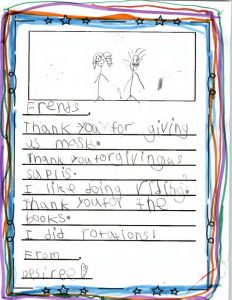 Frends
Thank you for giving
us mask.
Thank you for giving us
suplis.
I like doing riding.
Thank you for the
books.
I did rotations!
From
Desiree